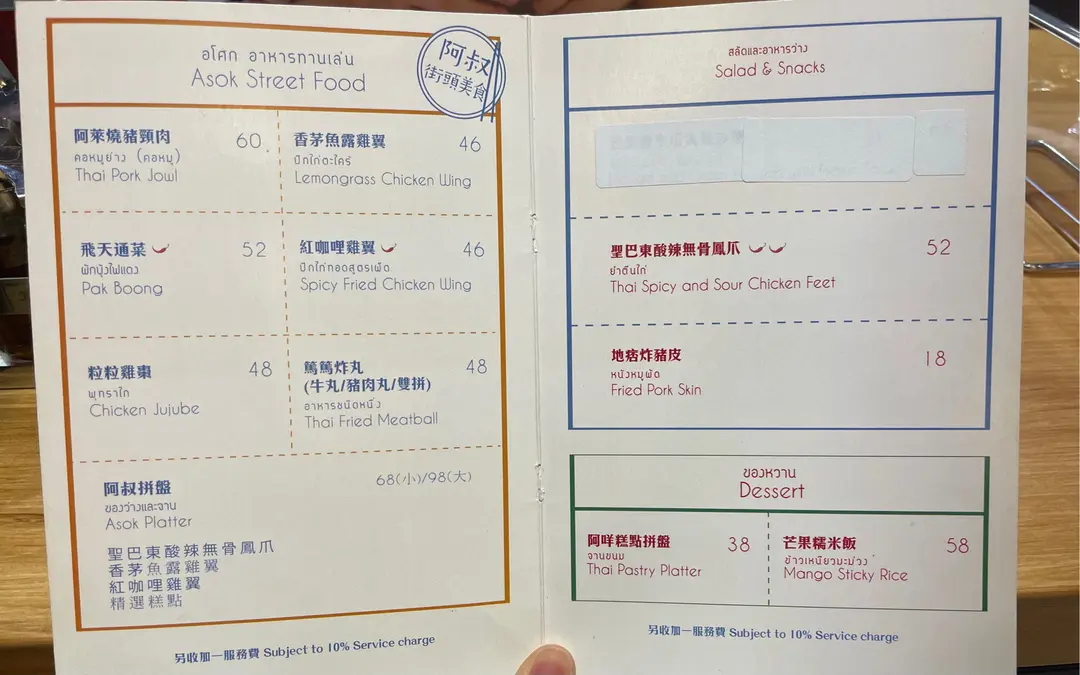 อโศก อาหารทานเล่น
Asok Street Food
阿叔
街頭美食
阿萊燒豬頸肉 60
คอหมูย่าง (คอหมู)
Thai Pork Jowl
香茅魚露雞翼 46
ปีกไก่ตะไคร้
Lemongrass Chicken Wing
飛天通菜 52
ผักบุ้งไฟแดง
Pak Boong
紅咖哩雞翼 46
ปีกไก่ทอดสูตรเผ็ด
Spicy Fried Chicken Wing
粒粒雞棗 48
พุทราไก่
Chicken Jujube
篤篤炸丸 48
(牛丸/豬肉丸/雙拼)
อาหารชนิดหนึ่ง
Thai Fried Meatball
阿叔拼盤 68(小)/98(大)
ของว่างและจาน
Asok Platter
聖巴東酸辣無骨鳳爪
香茅魚露雞翼
紅咖哩雞翼
精選糕點
另收加一服務費 Subject to 10% Service charge
สลัดและอาหารว่าง
Salad & Snacks
聖巴東酸辣無骨鳳爪 52
ยำตีนไก่
Thai Spicy and Sour Chicken Feet
地痞炸豬皮 18
หนังหมูผัด
Fried Pork Skin
ของหวาน
Dessert
阿咩糕點拼盤 38
จานขนม
Thai Pastry Platter
芒果糯米飯 58
ข้าวเหนียวมะม่วง
Mango Sticky Rice
另收加一服務費 Subject to 10% Service charge